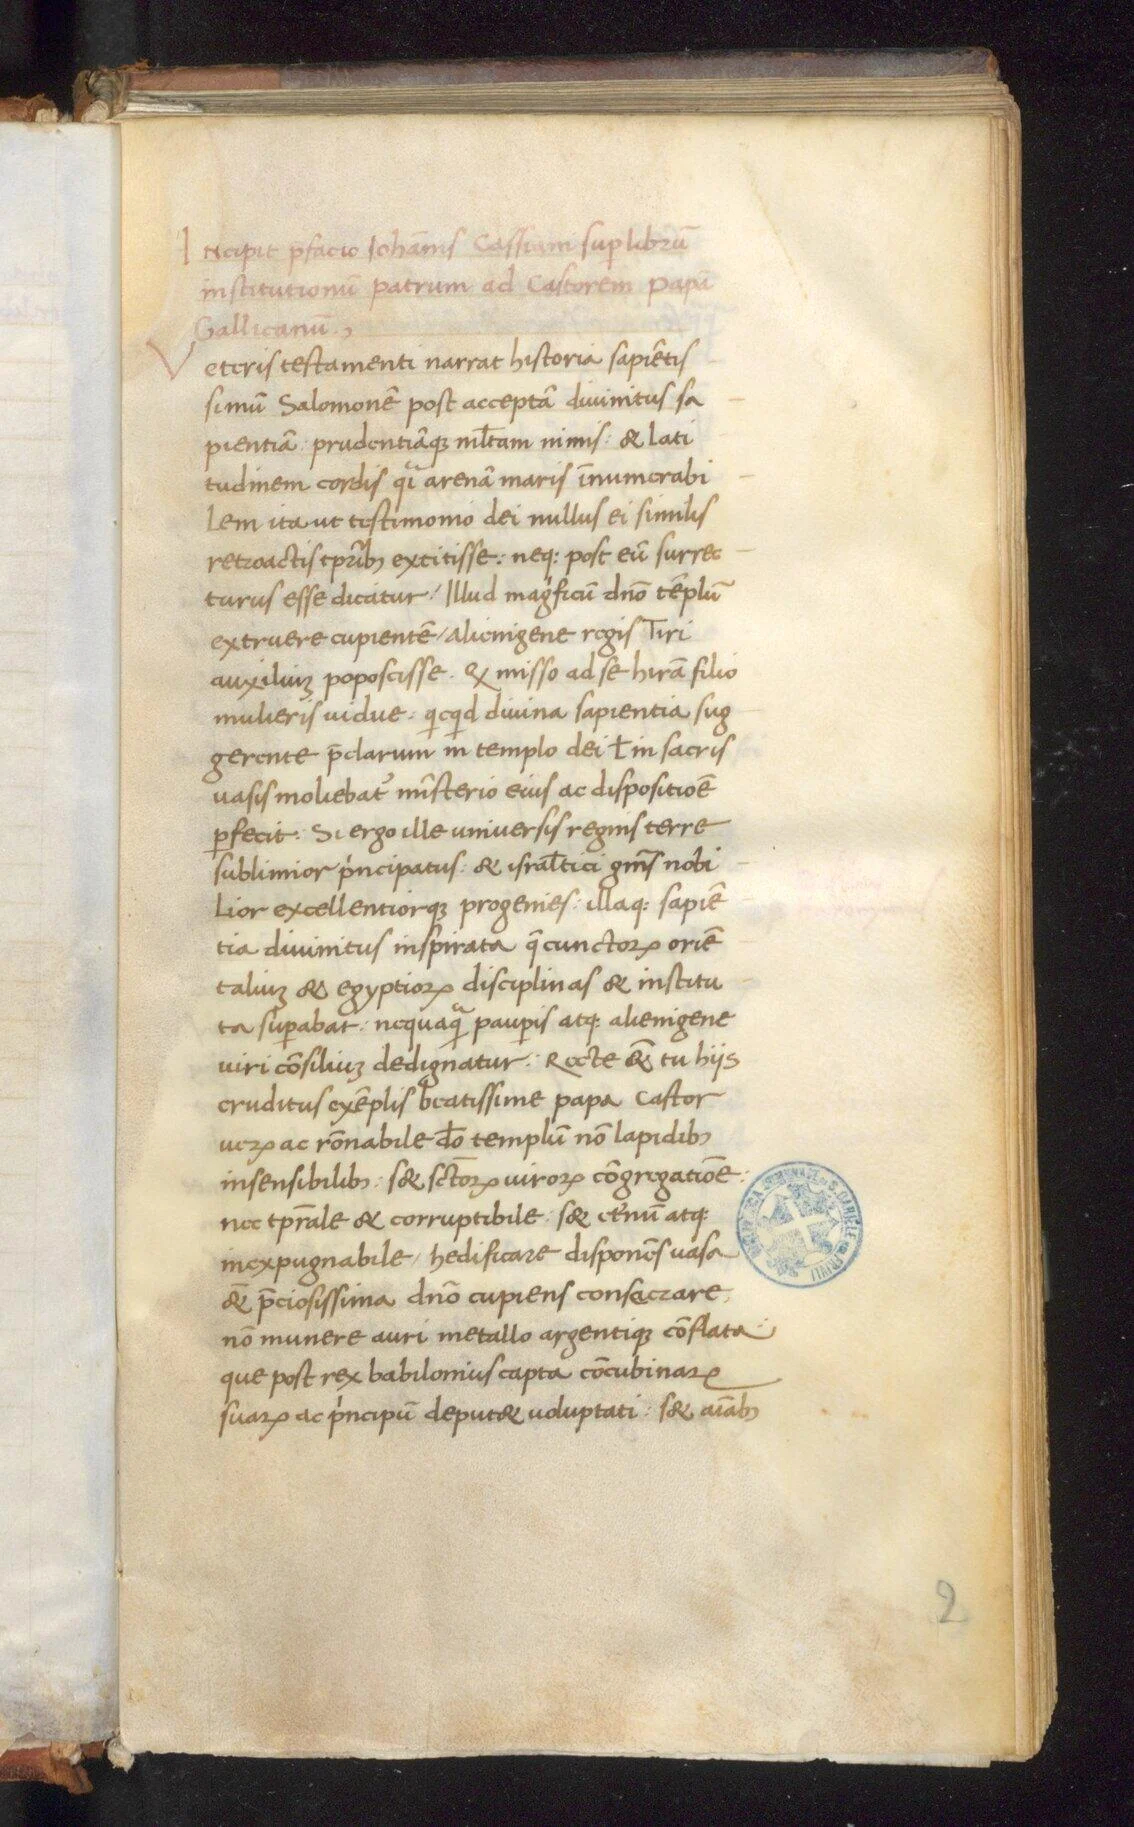 Incipit p̄facio Iohānis Cassiani suꝑ librū
institutionū patrum ad Castorem papā
Gallicanū.
Veteris testamenti narrat historia sapiētis
simū Salomonē post acceptā divinitus sa
pientiā: prudentiāqꝫ ml̄tam nimis: & lati
tudinem cordis qͣi arenā maris īnumerabi
lem ita ut testimonio dei nullus ei similis
retroactis tp̄ribꝫ extitisse: neqꝫ post eū surrec
turus esse dicatur / Illud magͥficū dn̄o tēplū
extruere cupientē / alienigene regis Tiri
auxiliuꝫ poposcisse. & misso ad se hirā filio
mulieris vidue: qͥcqͥd divina sapientia sug
gerente p̄clarum in templo dei ł in sacris
vasis moliebat᷑ mīsterio eius ac dispositiōe
ꝑfecit: Si ergo ille universis regnis terre
sublimior pͥncipatus: & isral̄tici gn̄is nobi
lior excellentiorqꝫ progenies: illaqꝫ sapiē
tia divinitus inspirata q̄ cunctoꝝ oriē
taliuꝫ & egyptioꝝ disciplinas & institu
ta suꝑabat: nequaqͣ pauꝑis atqꝫ alienigene
viri cōsiliuꝫ dedignatur: Recte &̄ tu hijs
eruditus exēplis beatissime papa Castor
veꝝ ac rōnabile dō templū nō lapidibꝫ
insensibilibꝫ: s& sc̄toꝝ viroꝝ cōgregatiōe:
nec tp̄rale & corruptibile: s& et̄nū atqꝫ
inexpugnabile / hedificare disponēs vasa
&̄ p̄ciosissima dn̄o cupiens consecrare,
nō munere auri metallo argentiqꝫ cōflata:
que post rex babilonius capta cōcubinaꝝ
suaꝝ ac pͥncipū deput& voluptati: s& aīabꝫ
2